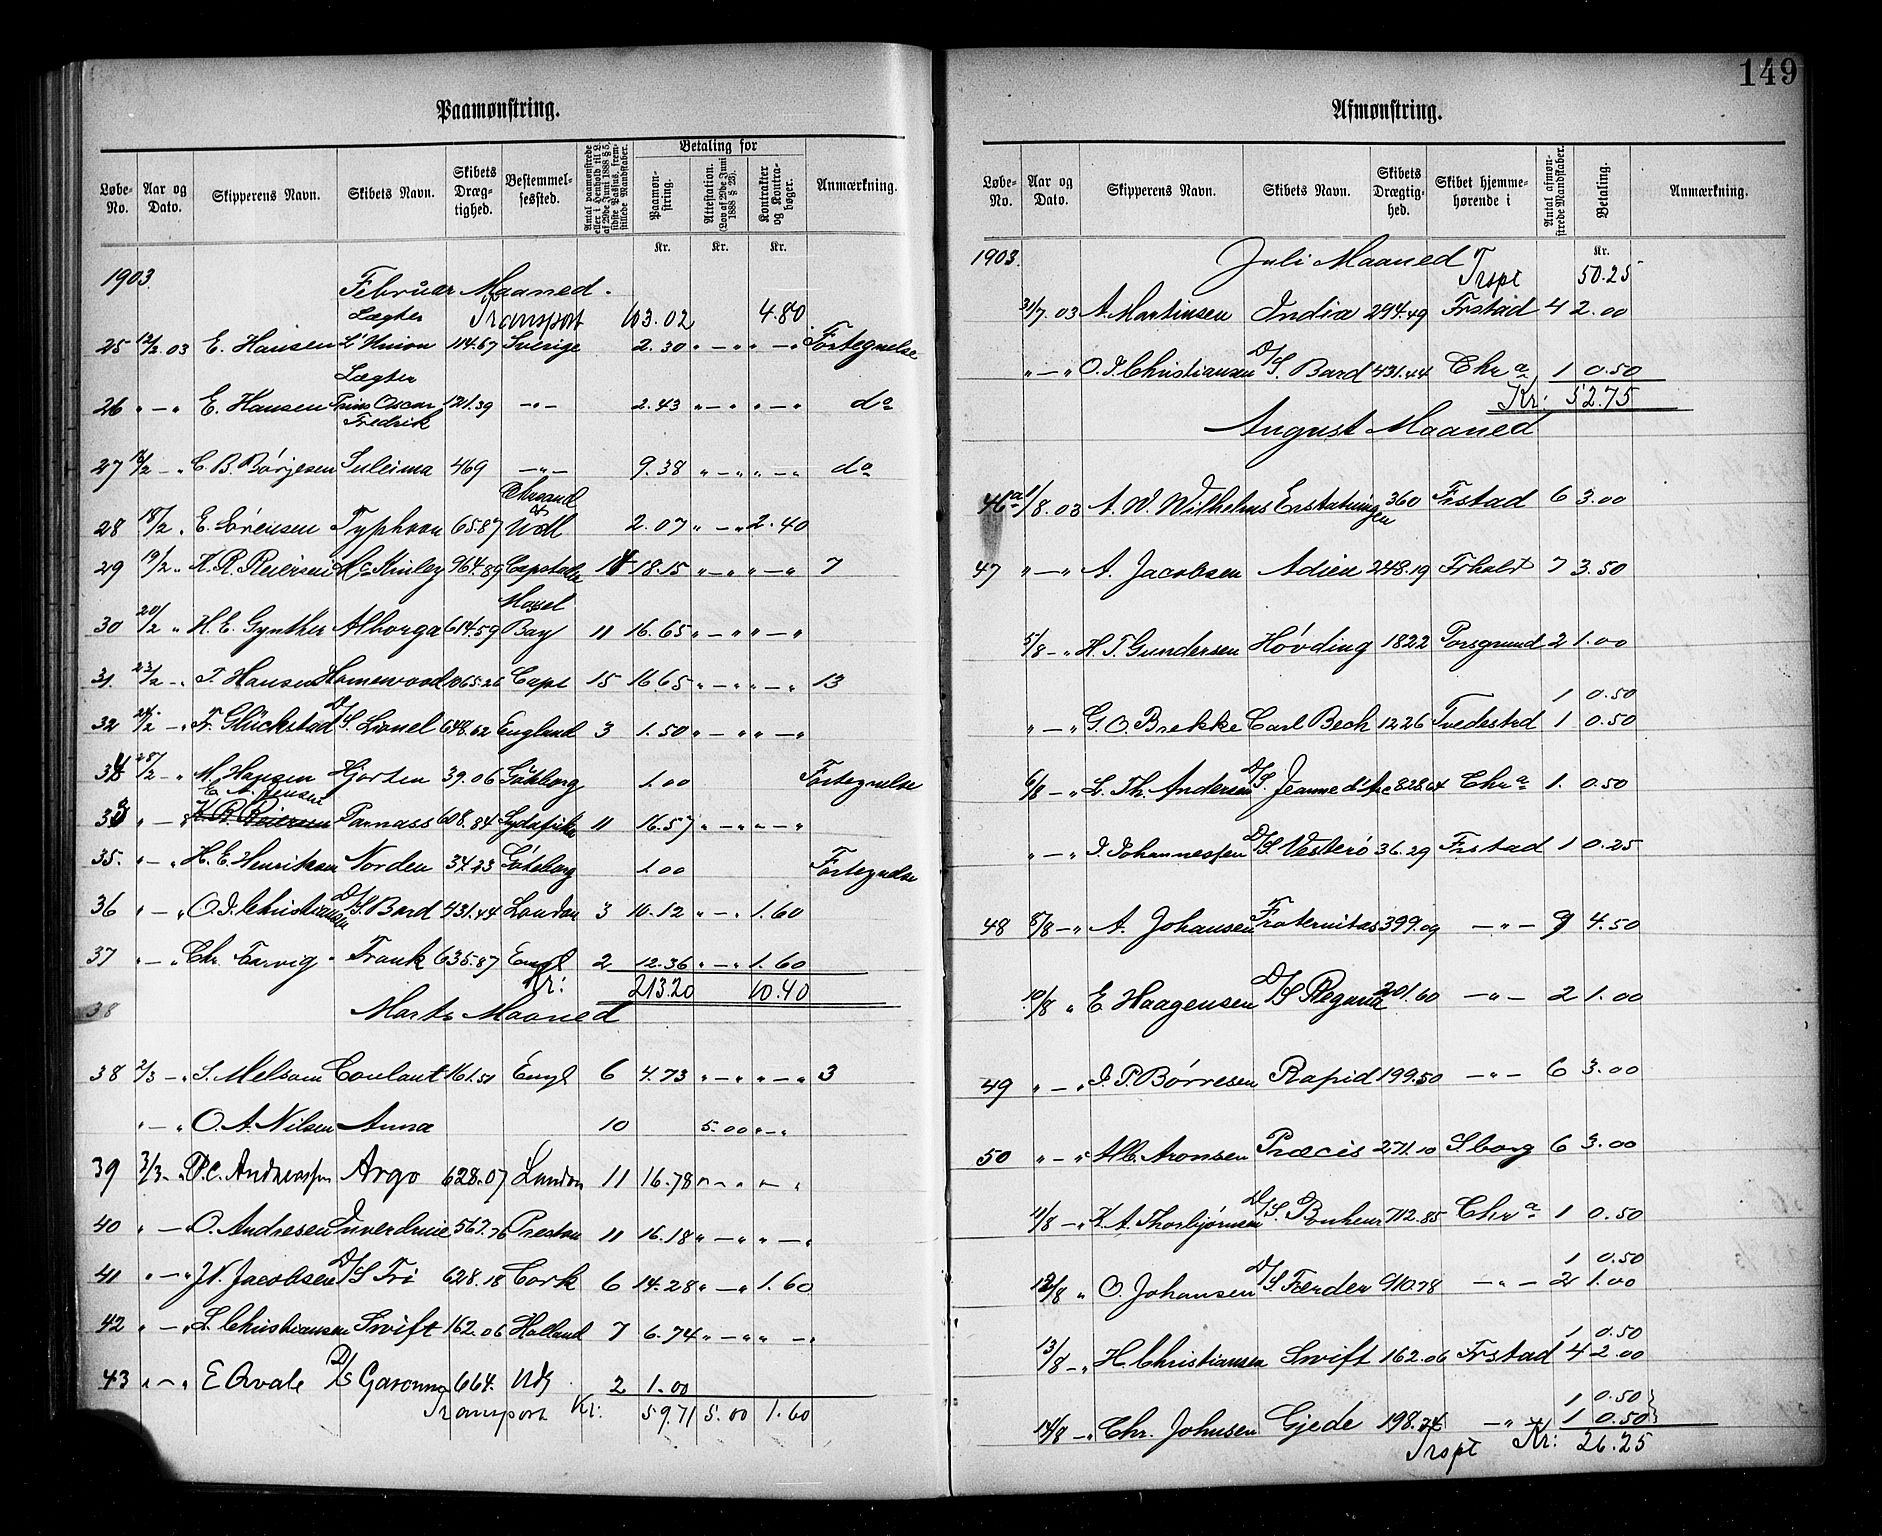 149
Paamønstring.
Løbe-No. Aar og Dato. Skipperens Navn. Skibets Navn. Skibets Drægtighed. Bestemmelsessted. Antal paamønstrede eller i Henhold til L. af 29de Juni 1888 § 5, sidste Passus, fremstillede Mandskaber. Betaling for Paamønstring. Attestation. (Lov af 29de Juni 1888 § 23). Kontrakter og Kontrabøger. Anmærkning.
Kr. Kr. Kr.
1903. Februar Maaned.
Transport 103.02 4.80
25 12/2 03 E. Hansen Lægter L'Union 114.67 Sverige 2.30 " — " " — " Fortegnelse
26 " — " E. Hansen Lægter Prins Oscar Fredrik 121.39 — " — 2.43 " — " " — " do
27 16/2 — " C. B. Børjesen Suleima 469 — " — 9.38 " — " " — " do
28 18/2 " E. Sørensen Typhoon 65.87 Chrsand & Udl 2.07 " — " 2.40
29 19/2 " K. R. Reiersen Mc Kinley 964.89 18.15 " — " " — " 7
30 20/2 " H. E. Gynther Alborga 614.59 Mossel Bay 11 16.65 " — " " — "
31. 23/2 — " T. Hansen Homewood 1065.26 Capt 15 16.65 " — " " — " 13
32 24/2 — " Fr. Glückstad D/S. Lionel 648.62 England 3 1.50 " — " " — "
28/2 — " M. Hansen Hjorten 39.06 Göteborg 1.00 Fortegnelse
" — " E. A. Jensen K. R. Reiersen Parnass 608.84 Sydafrika 11 16.57 " — " " — "
35. " — " H. E. Henriksen Norden 34.43 Göteborg 1.00 Fortegnelse
36 " — " O. J. Christiansen D/S. Bard 431.44 London 3 10.12 " — " 1.60
37 " — " Chr. Farvig Frank 635.87 Engl 2 12.36 " — " 1.60
Kr: 213.20 10.40
38 Marts Maaned
38 2/3 — " S. Melsom Coulant 161.51 Engl 6 4.73 " — " " — " 3
" — " O. A. Nilsen Anna 10 5.00 " — "
39 3/3 — " P. C. Andreassen Argo 628.07 London 11 16.78 " — " " — "
40 " — O. Andresen Inverdruie 567.76 Preston 11 16.18 " — " " — "
41 " — " N. Jacobsen D/S Fri 628.18 Cork 6 14.28 " — " 1.60
42 " — " L. Christiansen Swift 162.06 Holland 7 6.74 " — " " — "
43 " — " E Qvale D/S Garonna 664. Udl 2 1.00
Transport Kr: 59.71 5.00 1.60
Afmønstring.
Løbe-No. Aar og Dato. Skipperens Navn. Skibets Navn. Skibets Drægtighed. Skibet hjemmehørende i Antal afmønstrede Mandskaber. Betaling. Anmærkning.
Kr.
1903. Juli Maaned
Trspt 50.25
31/7 03 A. Martinsen India 294.49 Frstad 4 2.00
" — " O. J. Christiansen D/S. Bard 431.44 Chra 1 0.50
Kr: 52.75
August Maaned
46a 1/8. 03 A. W. Wilhelms Erstatningen 360 Frstad 6 3.00
47 " — " A. Jacobsen Adien 248.19 Frhald 7 3.50
5/8 — " H. T. Gundersen Høvding 1822 Porsgrund 2 1.00
1 0.50
" — " G. O. Brekke Carl Bech 1226 Tvedestd 1 0.50
6/8 — " L. Th. Andersen D/S. Jeanne d'Arc 828.64 Chra 1. 0.50
" — " J. Johannessen D/S Vesterö 36.29 Frstad 1 0.25
48 8/8 — " A. Johansen Fraternitas 399.09 — " — 9 4.50
10/8 " E. Haagensen D/S Regna 201.60 — " — 2 1.00
49 " — " J. P. Børresen Rapid 199.50 — " — 6 3.00
50 " — " Alb. Aronsen Præcis 271.10 S.borg 6 3.00
11/8 — " K. A. Thorbjørnsen D/S. Bonheur 712.85 Chra 1 0.50
1 0.50
12/8 " O. Johansen D/S Færder 910.78 — " — 2 1.00
1 0.50
13/8 — " H Christiansen Swift 162.06 Frstad 4 2.00
1 0.50
14/8 — " Chr. Johnsen Gjede 198.74 — " — 1 0.50
Trspt Kr: 26.25